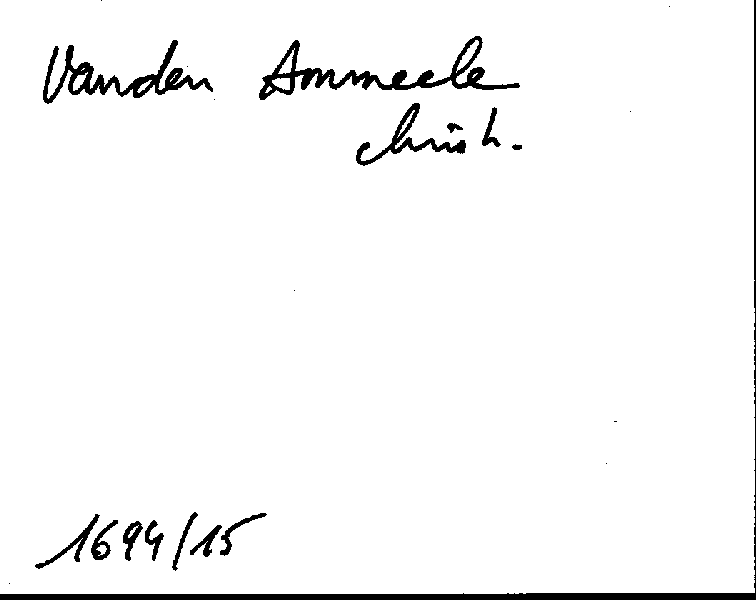 Vanden Ammeele
Christ.
1694/15